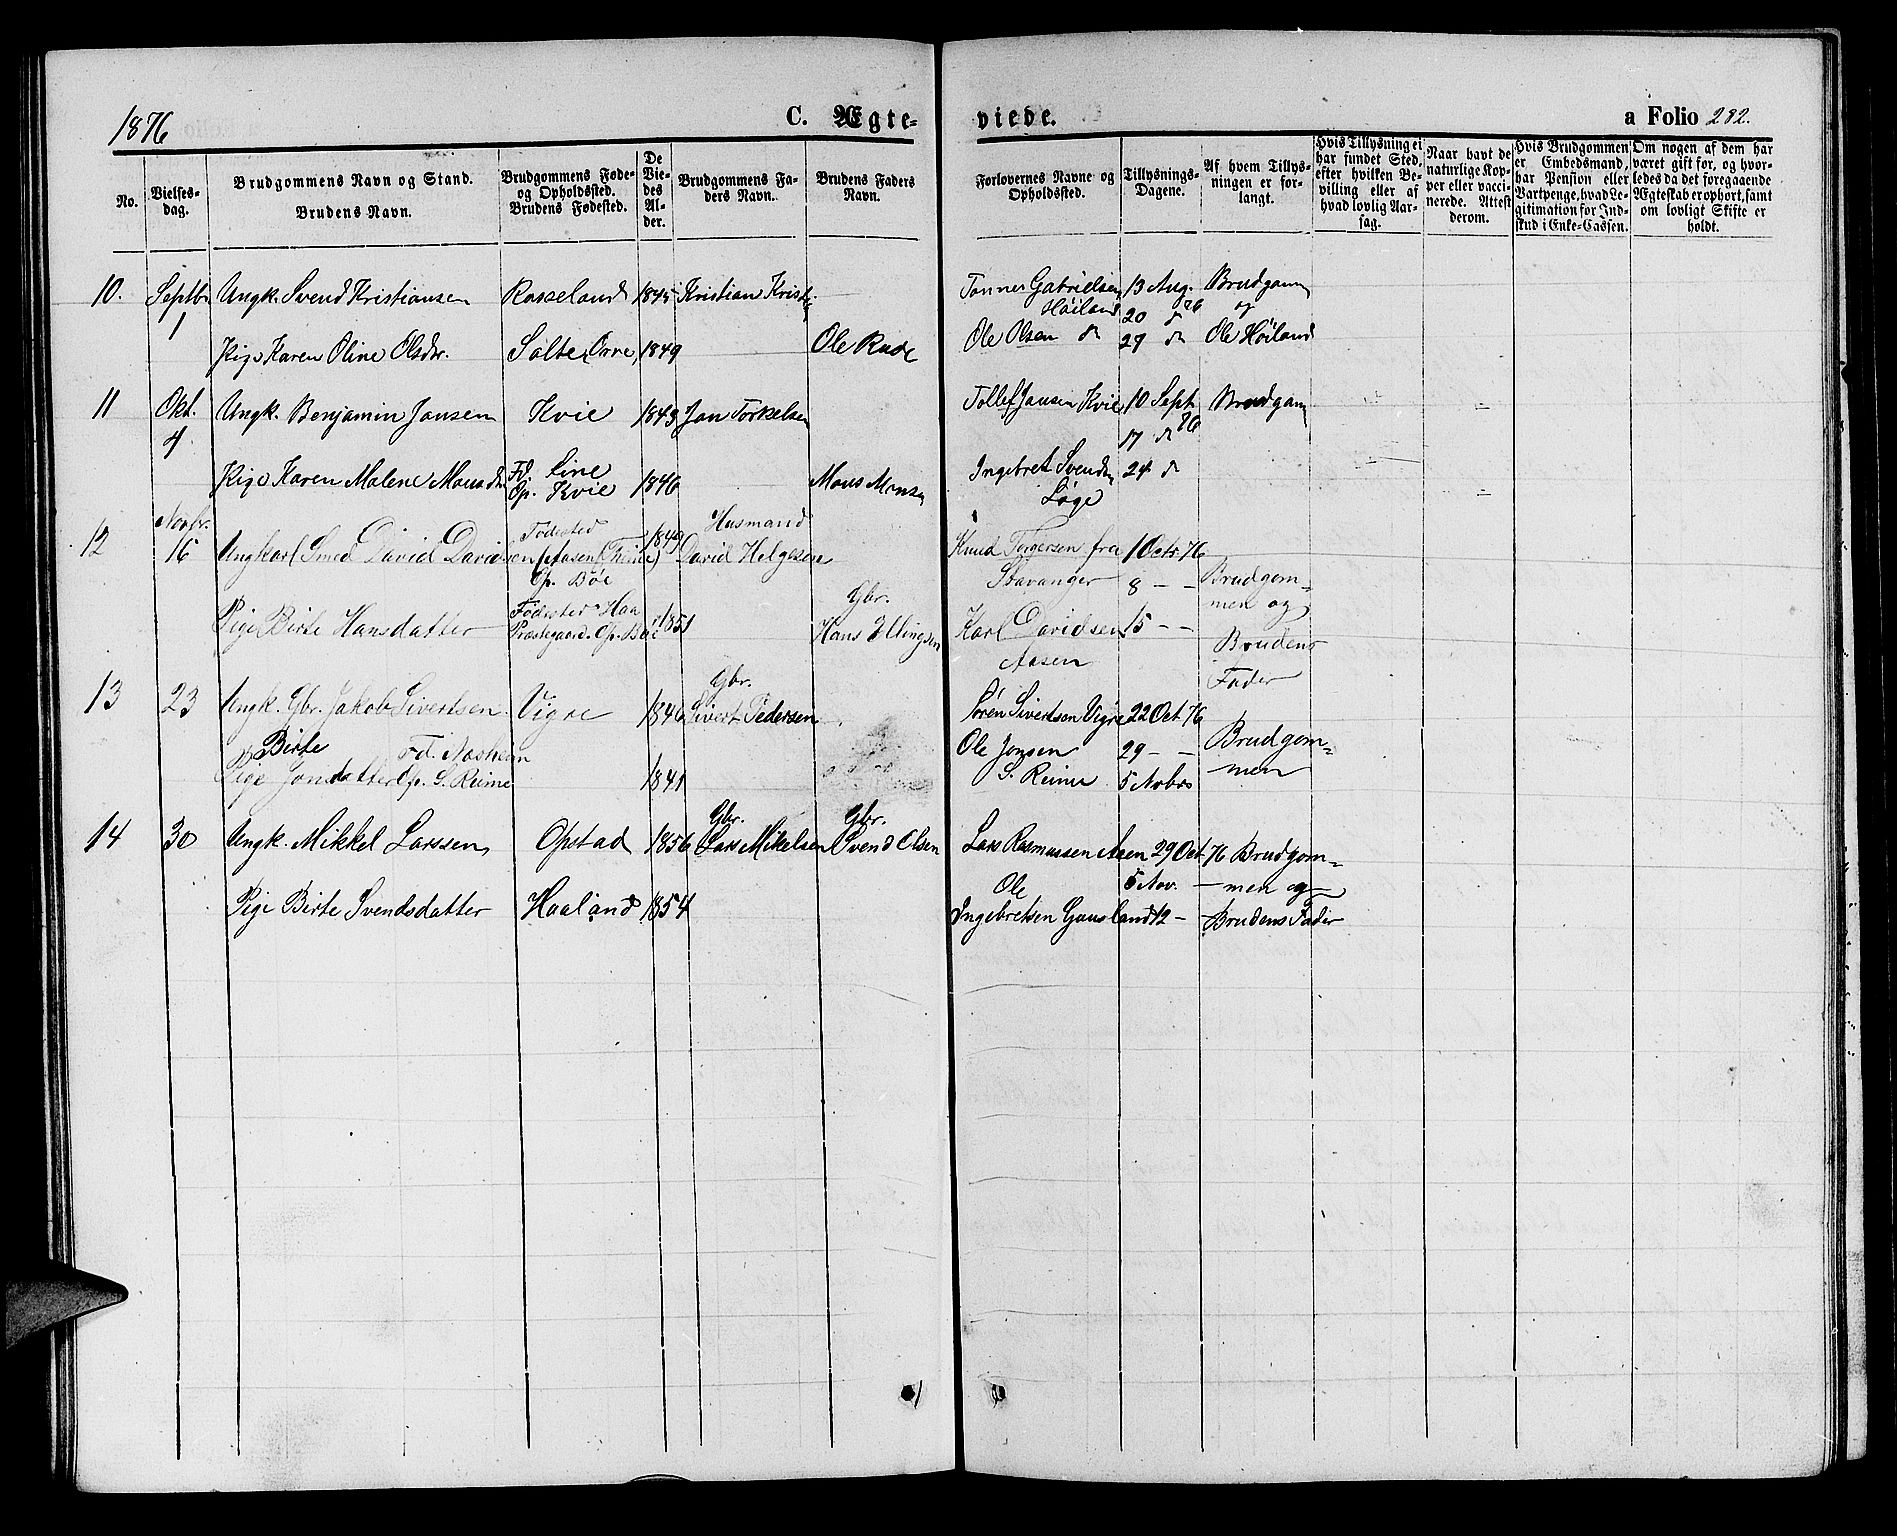 1876
C. Ægte-
viede.
a Folio 282.
No.
Vielses-
dag.
Brudgommens Navn og Stand.
Brudens Navn.
Brudgommens Føde-
og Opholdssted.
Brudens Fødested.
De
Vie-
des
Al-
der.
Brudgommens Fa-
ders Navn.
Brudens Faders
Navn.
Forlovernes Navne og
Opholdssted.
Tillysnings-
Dagene.
Af hvem Tillys-
ningen er for-
langt.
Hvis Tillysning ei
har fundet Sted,
efter hvilken Be-
villing eller af
hvad lovlig Aar-
sag.
Naar havt de
naturlige Kop-
per eller vacci-
nerede. Attest
derom.
Hvis Brudgommen
er Embedsmand,
har Pension eller
Vartpenge, hvad Le-
gitimation for Ind-
skud i Enke-Cassen.
Om nogen af dem har
været gift før, og hvor-
ledes da det foregaaende
Ægteskab er ophørt, samt
om lovligt Skifte er
holdt.
10. Septbr Ungk. Svend Kristiansen Rosseland 1845 Kristian Krist. Tønnes Gabrielsen 13 Aug. Brudgom
1 Høiland 20 d 76 og
Pige Karen Oline Olsdr. Salte, Orre, 1849 Ole Rude Ole Olsen dr 27 dr Ole Høiland
11 Okt. Ungk. Benjamin Jansen Kvie 1843 Jan Torkelsen Tollef Jansen Kvie 10 Sept Brudgom
4 17 dr 76
Pige Karen Malene Monsdr Fd. Line 1846 Mons Monsen Ingebret Svends. 24 d
Op. Kvie Løge
Novbr. Fødested Husmand
12 16 Ungkarl Smed David Davidsen (Aasen (Thime) 1849 David Helgesen Knud Torgersen fra 1 Octr 76
Op. Bøe Stavanger 8 - - Brudgom-
Fødested Haa Gbr. men og
Pige Birte Hansdatter Præstegaard. Op. Bøe 1851 Hans Ellingsen Karl Davidsen 15 - - Brudens
Aasen Fader
Gbr.
13 23 Ungk. Gbr. Jakob Sivertsen Vigre 1846 Sivert Pedersen Søren Sivertsen Vigre 22 Oct 76
Birte Fd. Nasheim Ole Jonsen 29 - - Brudgom-
Pige Jonsdatter Op. S. Reime 1841 S. Reime 5 Novbr men
Gbr. Gbr.
14 30 Ungk. Mikkel Larssen Opstad 1856 Lars Mikelsen Svend Olsen Lars Rasmussen Aasen 29 Oct 76 Brudgom-
Ole 5 Nov. - men og
Pige Birte Svendsdatter Haaland 1854 Ingebretsen Gausland 12 - Brudens Fader